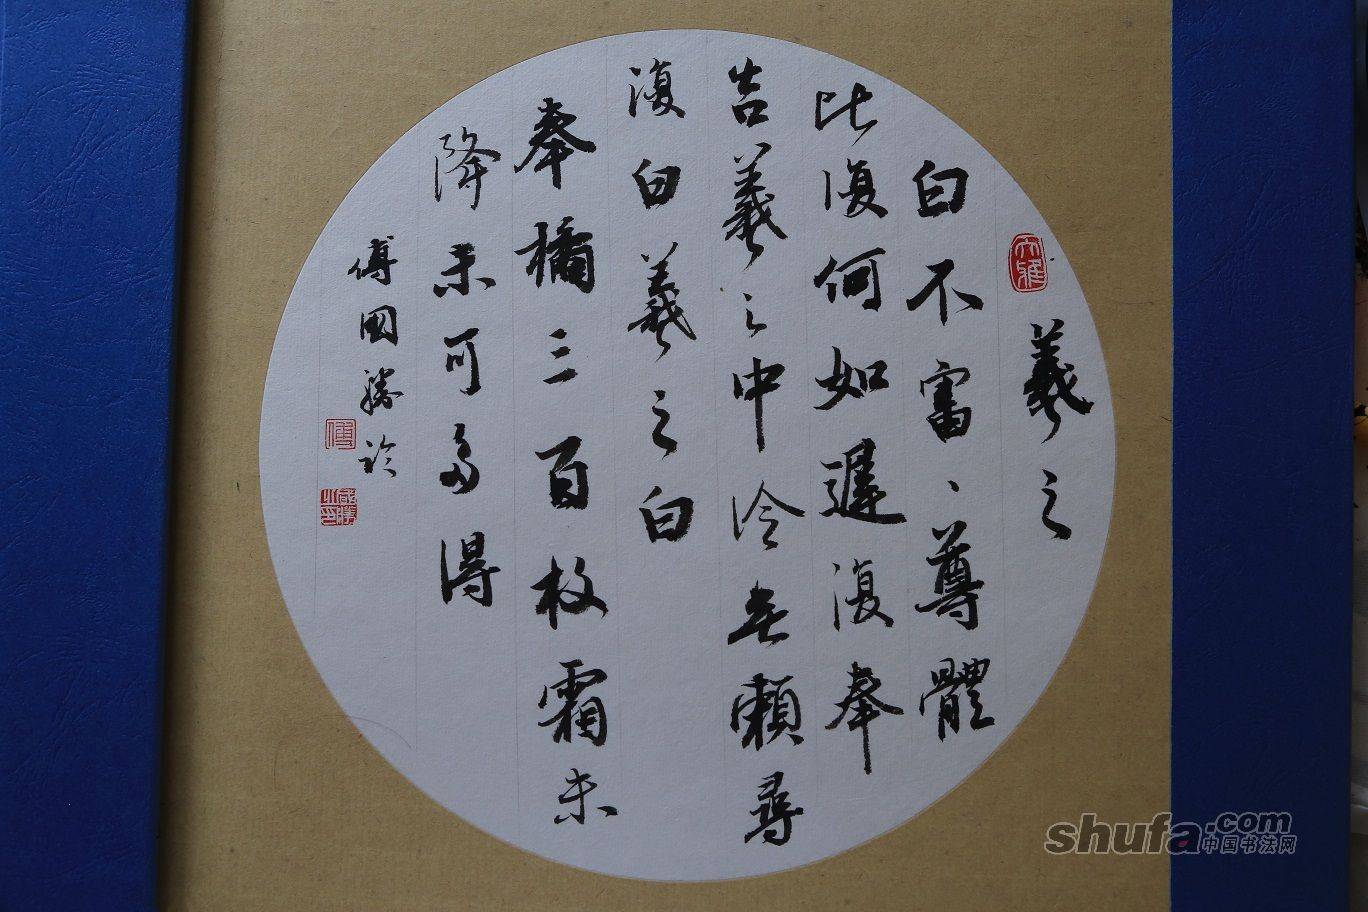 羲之
白不審、尊體
比復何如遲復奉
告羲之中冷無賴尋
復白羲之白
奉橘三百枚霜未
降未可多得
傅國勝
大雅
傅
國勝之印
shufa.com
中国书法网